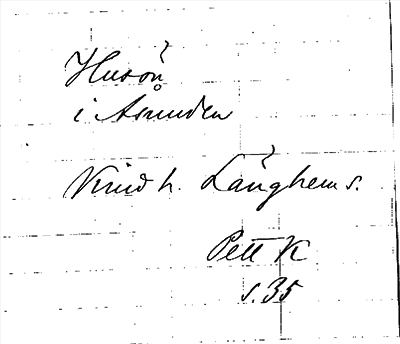 Husön
i Åsunden
Kind h. Länghem s.
Pett K
s. 35